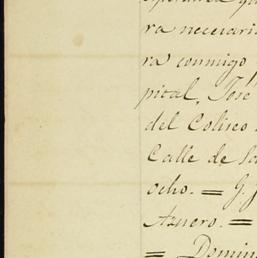 ra necesari
ra conmigo
pital, José
del Coliseo
Calle de
ocho. = G.
Aznero. =
= Domin